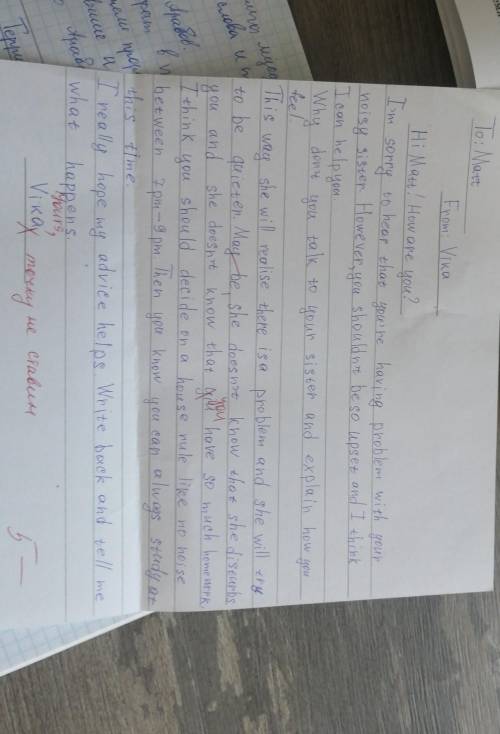 To: Matt
From: Vika
Hi Matt! How are you?
I'm sorry to hear that you're having problem with your
noisy sister. However, you shouldn't be so upset and I think
I can help you
Why don't you talk to your sister and explain how you
feel
This way she will realise there is a problem and she will try
to be quieter. May be, she doesn't know that she disturbs
you and she doesn't know that you have so much homework
I think you should decide on a house rule like no noise
between 7 pm-9 pm Then you know you can always study at
this time.
I really hope my advice helps Write back and tell me
what happens.
Yours,
Vika точку не ставим
5-